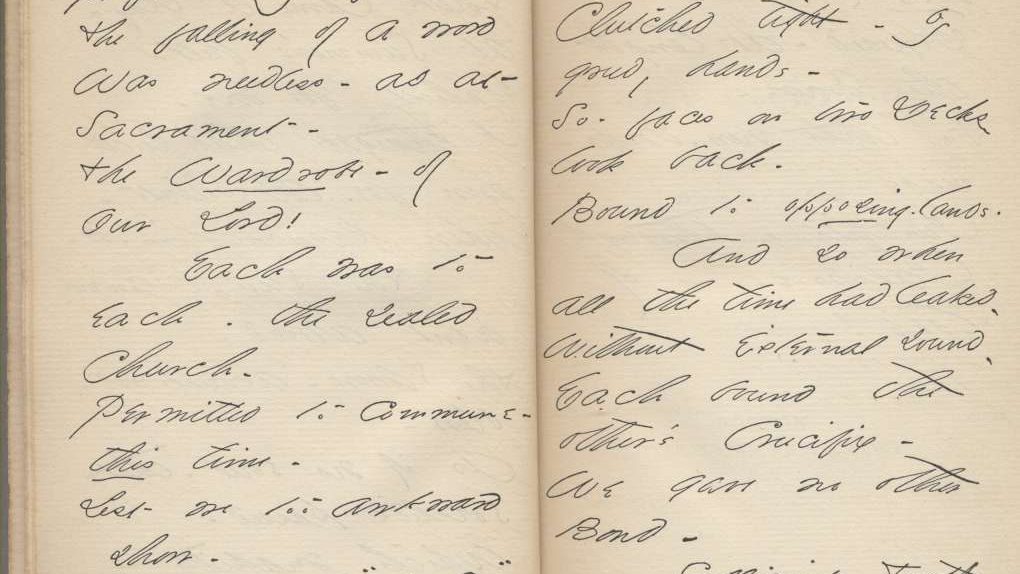 the falling of a word
Was needless - as at -
Sacrament -
The Wardrobe - of
Our Lord!
Each was to
each . the sealed
Church -
Permitted to commune -
this time -
Lest we too awkward
show -
Clutched tight - by
greedy hands -
So - faces on two Decks
look back -
Bound to opposing lands .
And so when
all the time had leaked,
Without External sound,
Each bound the
other's Crucifix -
We gave no other
Bond -